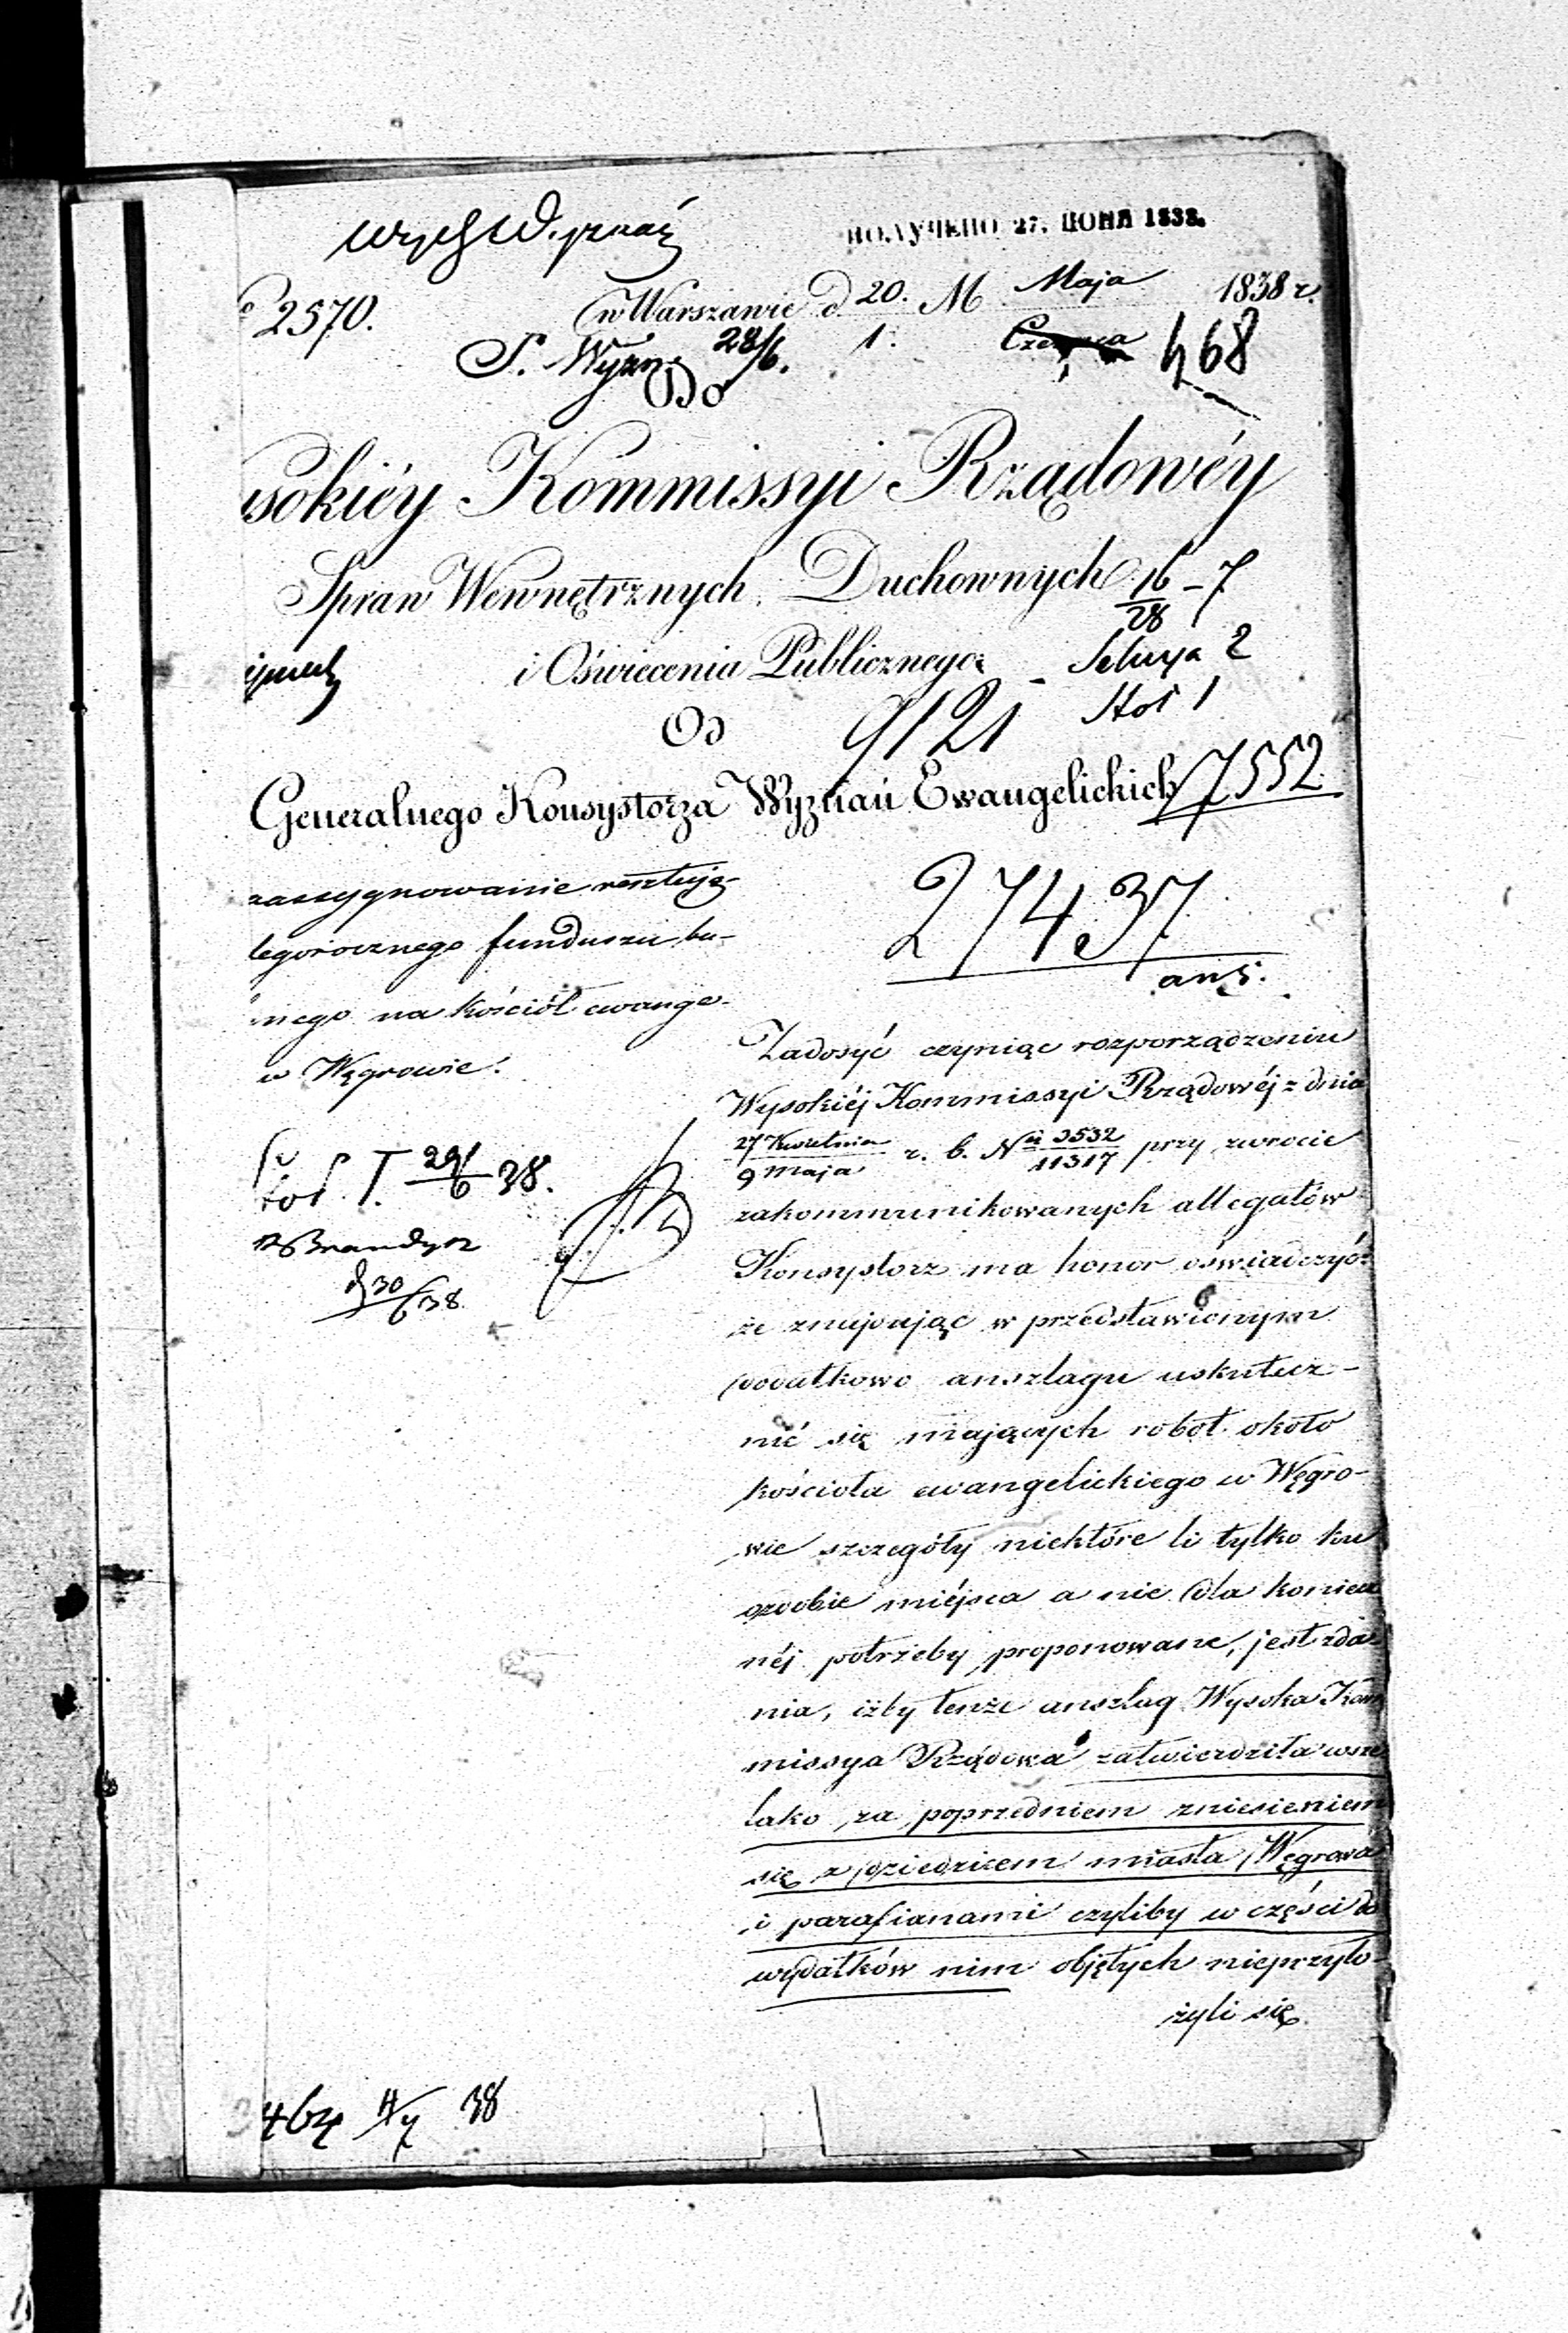 ПОЛУЧЕНО 27. ІЮНЯ 1838.
2570.
w Warszawie d 20. M Maja 1838 r.
1. Czerwca
S. Wyzn. 28/6.
468
Do
sokiéy Kommissyi Rządowéy
Spraw Wewnętrznych Duchownych
16/28 - 7
i Oświecenia Publicznego
Sekcya 2
Stół 1
Od
9121
Generalnego Konsystorza Wyznań Ewangelickich
7552
27437
ans.
zassygnowanie resztują
tegorocznego funduszu bu-
nego na kościół ewange-
w Węgrowie.
29/6 38.
Brandysz
d 30/6 38.
Zadosyć czyniąc rozporządzeniu
Wysokiéj Kommissyi Rządowéj z dnia
27 Kwietnia / 9 Maja r. b. N 3532/11317 przy zwrocie
zakommunikowanych allegatów
Konsystorz ma honor oświadczyć:
że znajdując w przedstawionym
dodatkowo anszlagu uskutecz-
nić się mających robot około
kościoła ewangelickiego w Węgro-
wie szczegóły niektóre li tylko ku
ozdobie miéjsca a nie dla koniecz
néj potrzeby proponowane, jest zda-
nia, iżby tenże anszlag Wysoka Kom
missya Rządowa zatwierdziła wsze
lako za poprzedniem zniesieniem
się z dziedzicem miasta Węgrowa
i parafianami czyliby w części do
wydatków nim objętych nieprzyło-
żyli się.
38